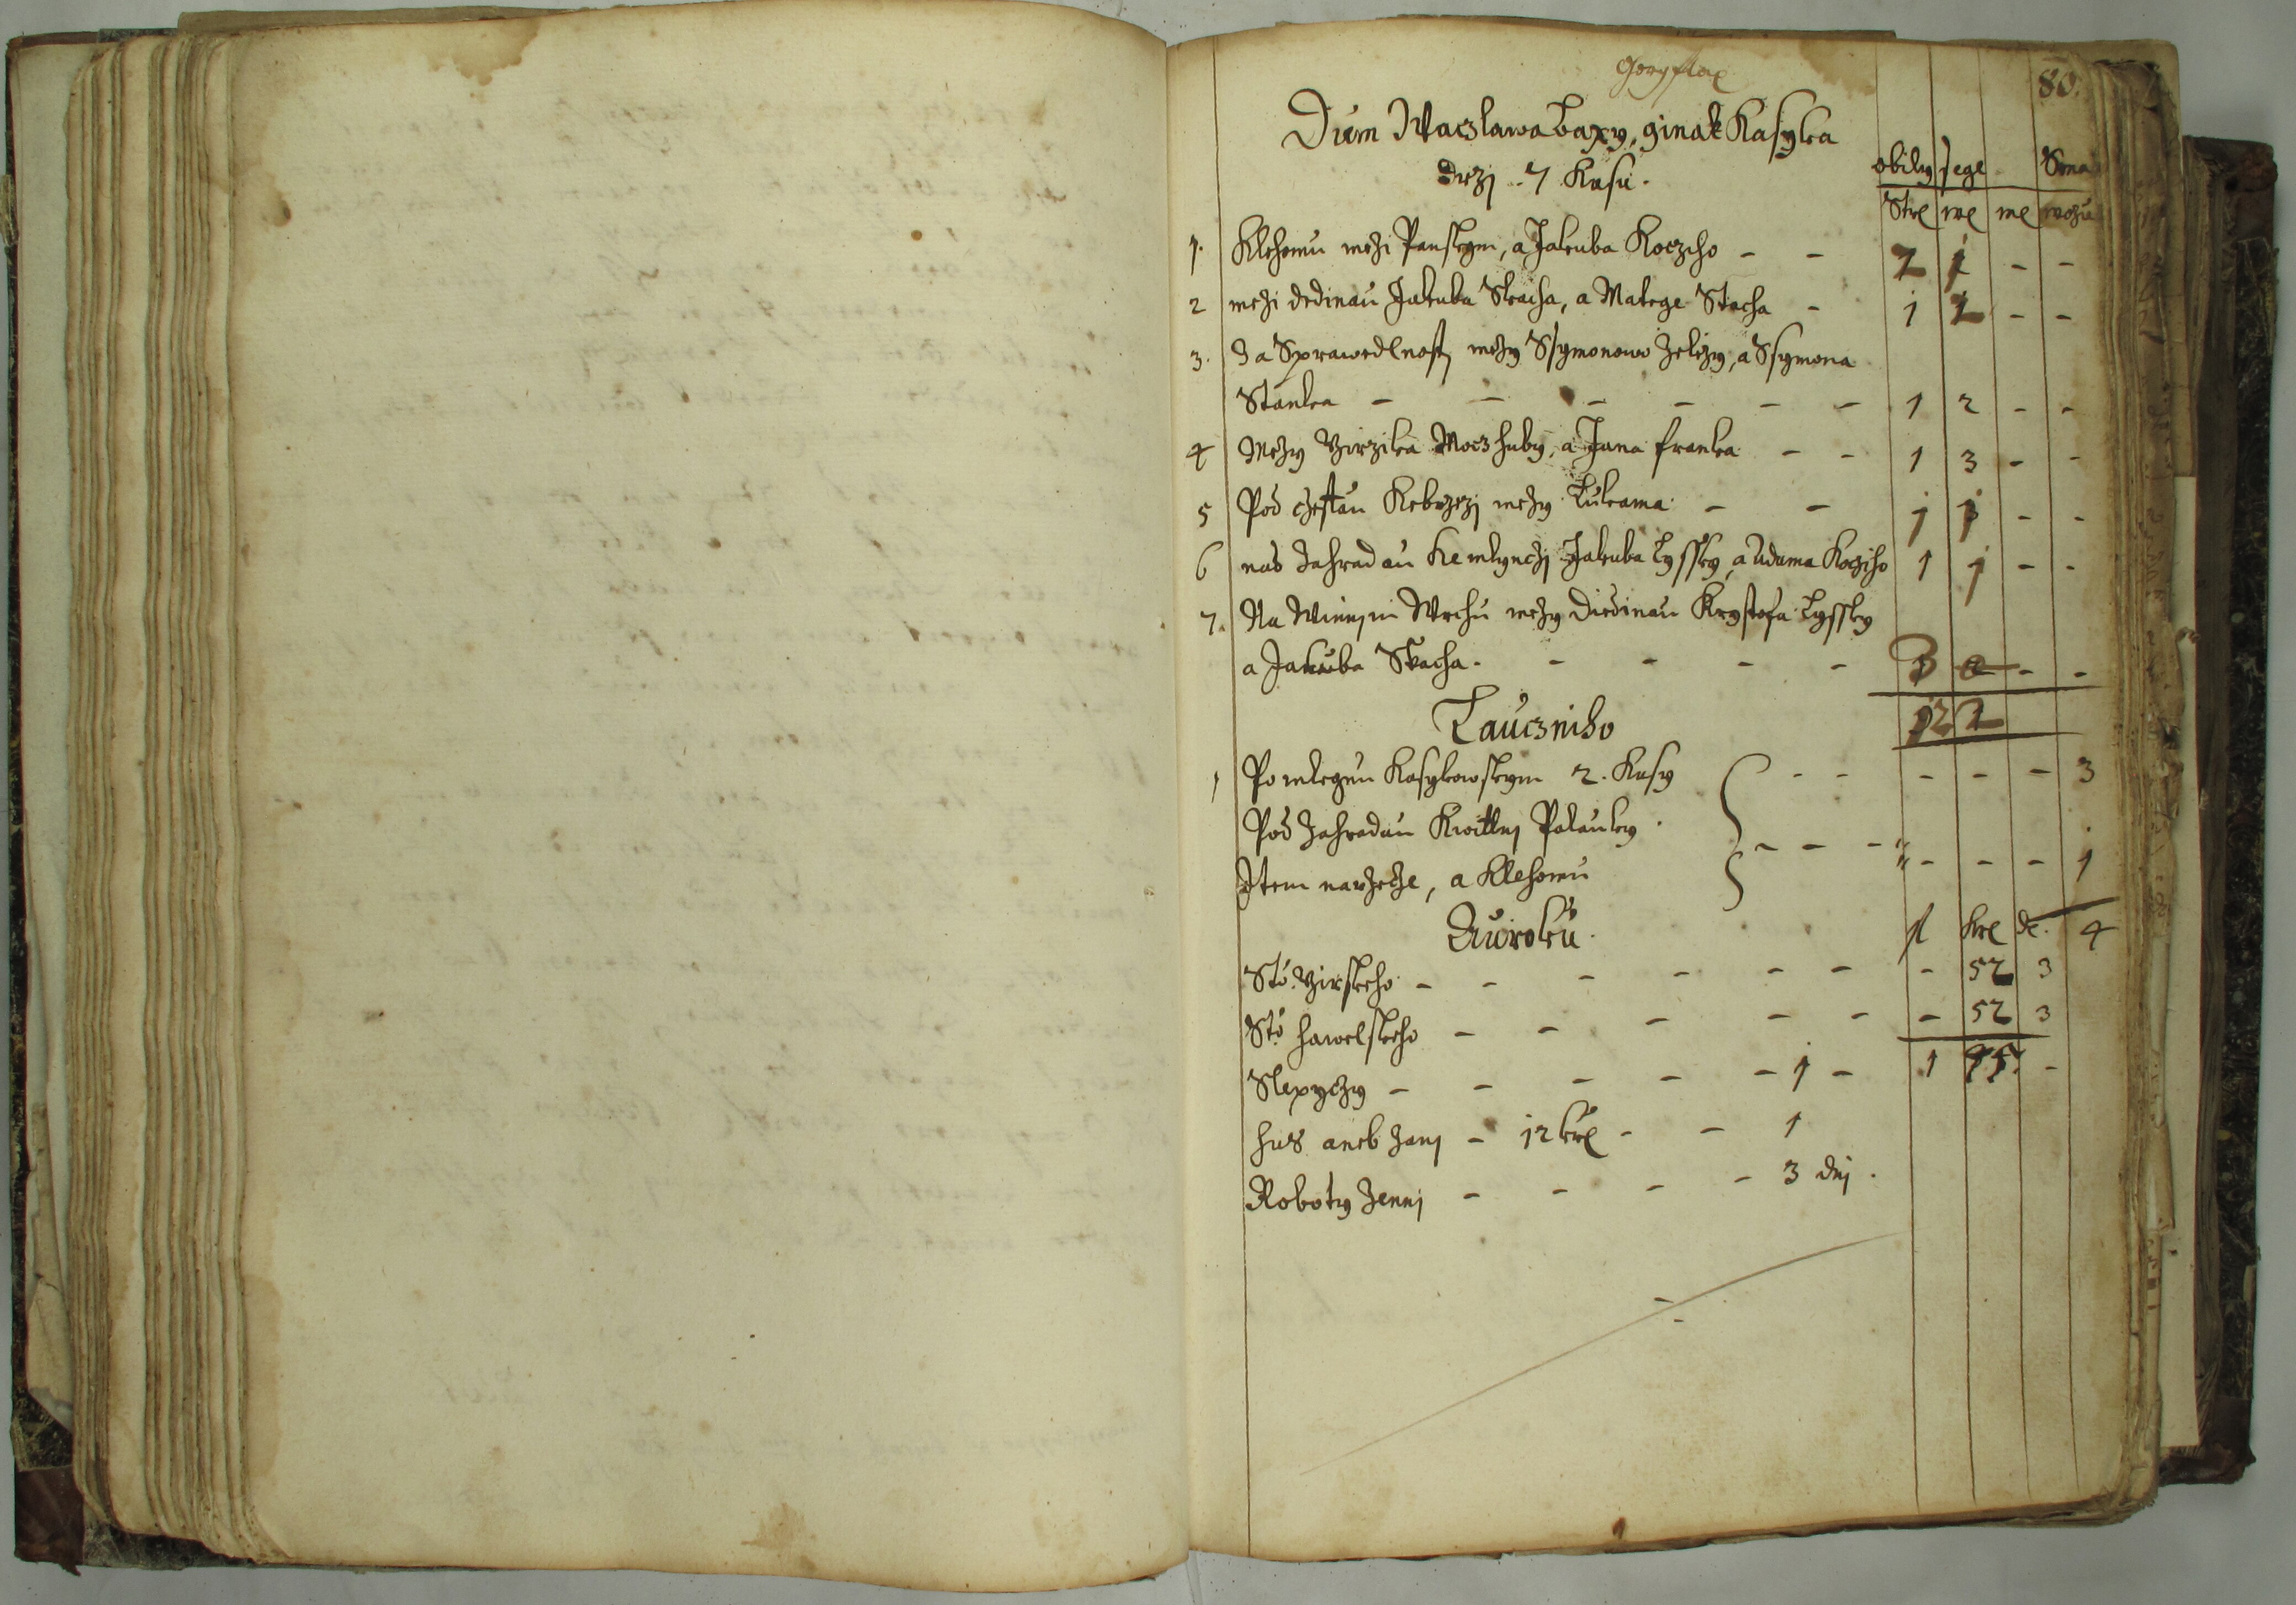 80.
Dům Waczlawa Baxy, ginak Kasyka
drzj 7 Kusu.
obily sege Sena
Str wel me wozu
1. Klehomu mezi Panskym, a Jakuba Koczyho - - 2 1 - -
2 mezi dedinau Jakuba Skacha, a Matege Stacha - 1 2 - -
3. Za Sprawedlnostj mezy Ssymonowo Zelizy, a Ssymona
Stanka - - - - - - 1 2 - -
4 Mezy Girzika Moczhuby, a Jana franka - - 1 3 - -
5 Pod czestau Kebrzezj mezy Lukama - - 1 1 - -
6 nad Zahradau Ke mlynczj Jakuba Lyssky, a Adama Kocziho 1 1 - -
7. Na Winnym Wrchu mezy Diedinau Krystofa Lyssky
a Jakuba Skacha. - - - - 3 - -
12 2
Lauczniho
1 Po mlegnu Kasykowskym 2. Kusy - - - - - 3
Pod Zahradau Kwittnj Palauky.
Item narzecze, a Klehomu - - - - - - 1
Auroku. fl krl de. 4
Sto. Girskeho - - - - - - - 52 3
Sto hawelskeho - - - - - - 52 3
Slepyczy - - - - - 1 - 1 45 -
hus aneb Zanj - 12 krl - - 1
Roboty Zennj - - - - 3 dnj.